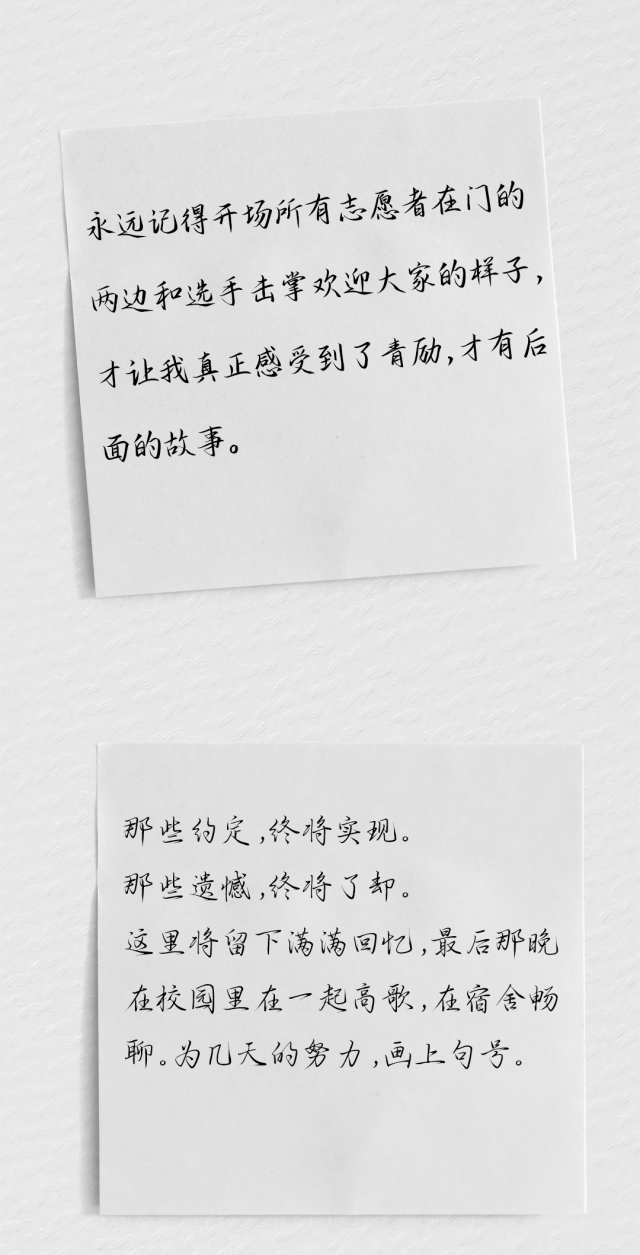 永远记得开场所有志愿者在门的
两边和选手击掌欢迎大家的样子，
才让我真正感受到了青励，才有后
面的故事。
那些约定，终将实现。
那些遗憾，终将了却。
这里将留下满满回忆，最后那晚
在校园里在一起高歌，在宿舍畅
聊。为几天的努力，画上句号。